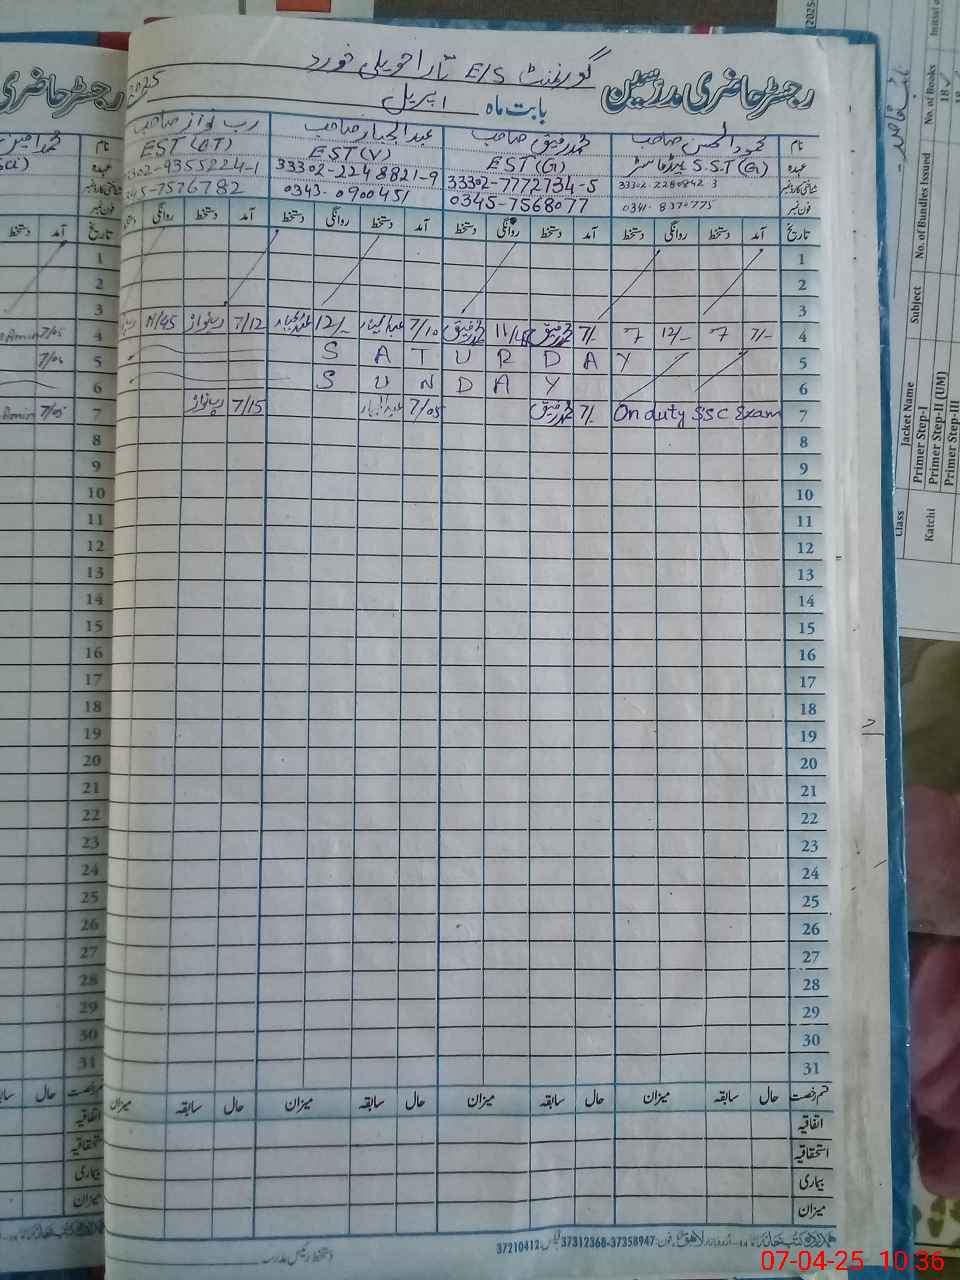 رجسٹر حاضری مدرسین
گورنمنٹ E/S تارا حویلی خورد
2025
بابت ماہ اپریل
نام محمود الحسن صاحب محمد رفیق صاحب عبدالجبار صاحب رب نواز صاحب
عہدہ S.S.T (G) ہیڈ ماسٹر EST (G) EST (V) EST (AT)
شناختی کارڈ نمبر 33302-2280842-3 33302-7772734-5 33302-2248821-9 33302-9355224-1
فون نمبر 0341-8370775 0345-7568077 0343-0900451 0345-7576782
تاریخ آمد دستخط روانگی دستخط آمد دستخط روانگی دستخط آمد دستخط روانگی دستخط آمد دستخط روانگی
1
2
3
4 7/- 7 12/- 7 7/- محمد رفیق محمد رفیق 7/10 12/- 7/12 رب نواز 11/45
5 S A T U R D A Y
6 S U N D A Y
7 On duty SSC Exam 7/- محمد رفیق 7/05 7/15 رب نواز
8
9
10
11
12
13
14
15
16
17
18
19
20
21
22
23
24
25
26
27
28
29
30
31
قسم رخصت حال سابقہ میزان حال سابقہ میزان حال سابقہ میزان حال سابقہ میزان
اتفاقیہ
استحقاقیہ
بیماری
میزان
دستخط رئیس مدرسہ
37210412 37312368-37358947
Class
Jacket Name
Subject
No. of Bundles Issued
No. of Books
Katchi
Primer Step-I
Primer Step-II (UM)
Primer Step-III
18
07-04-25 10:36